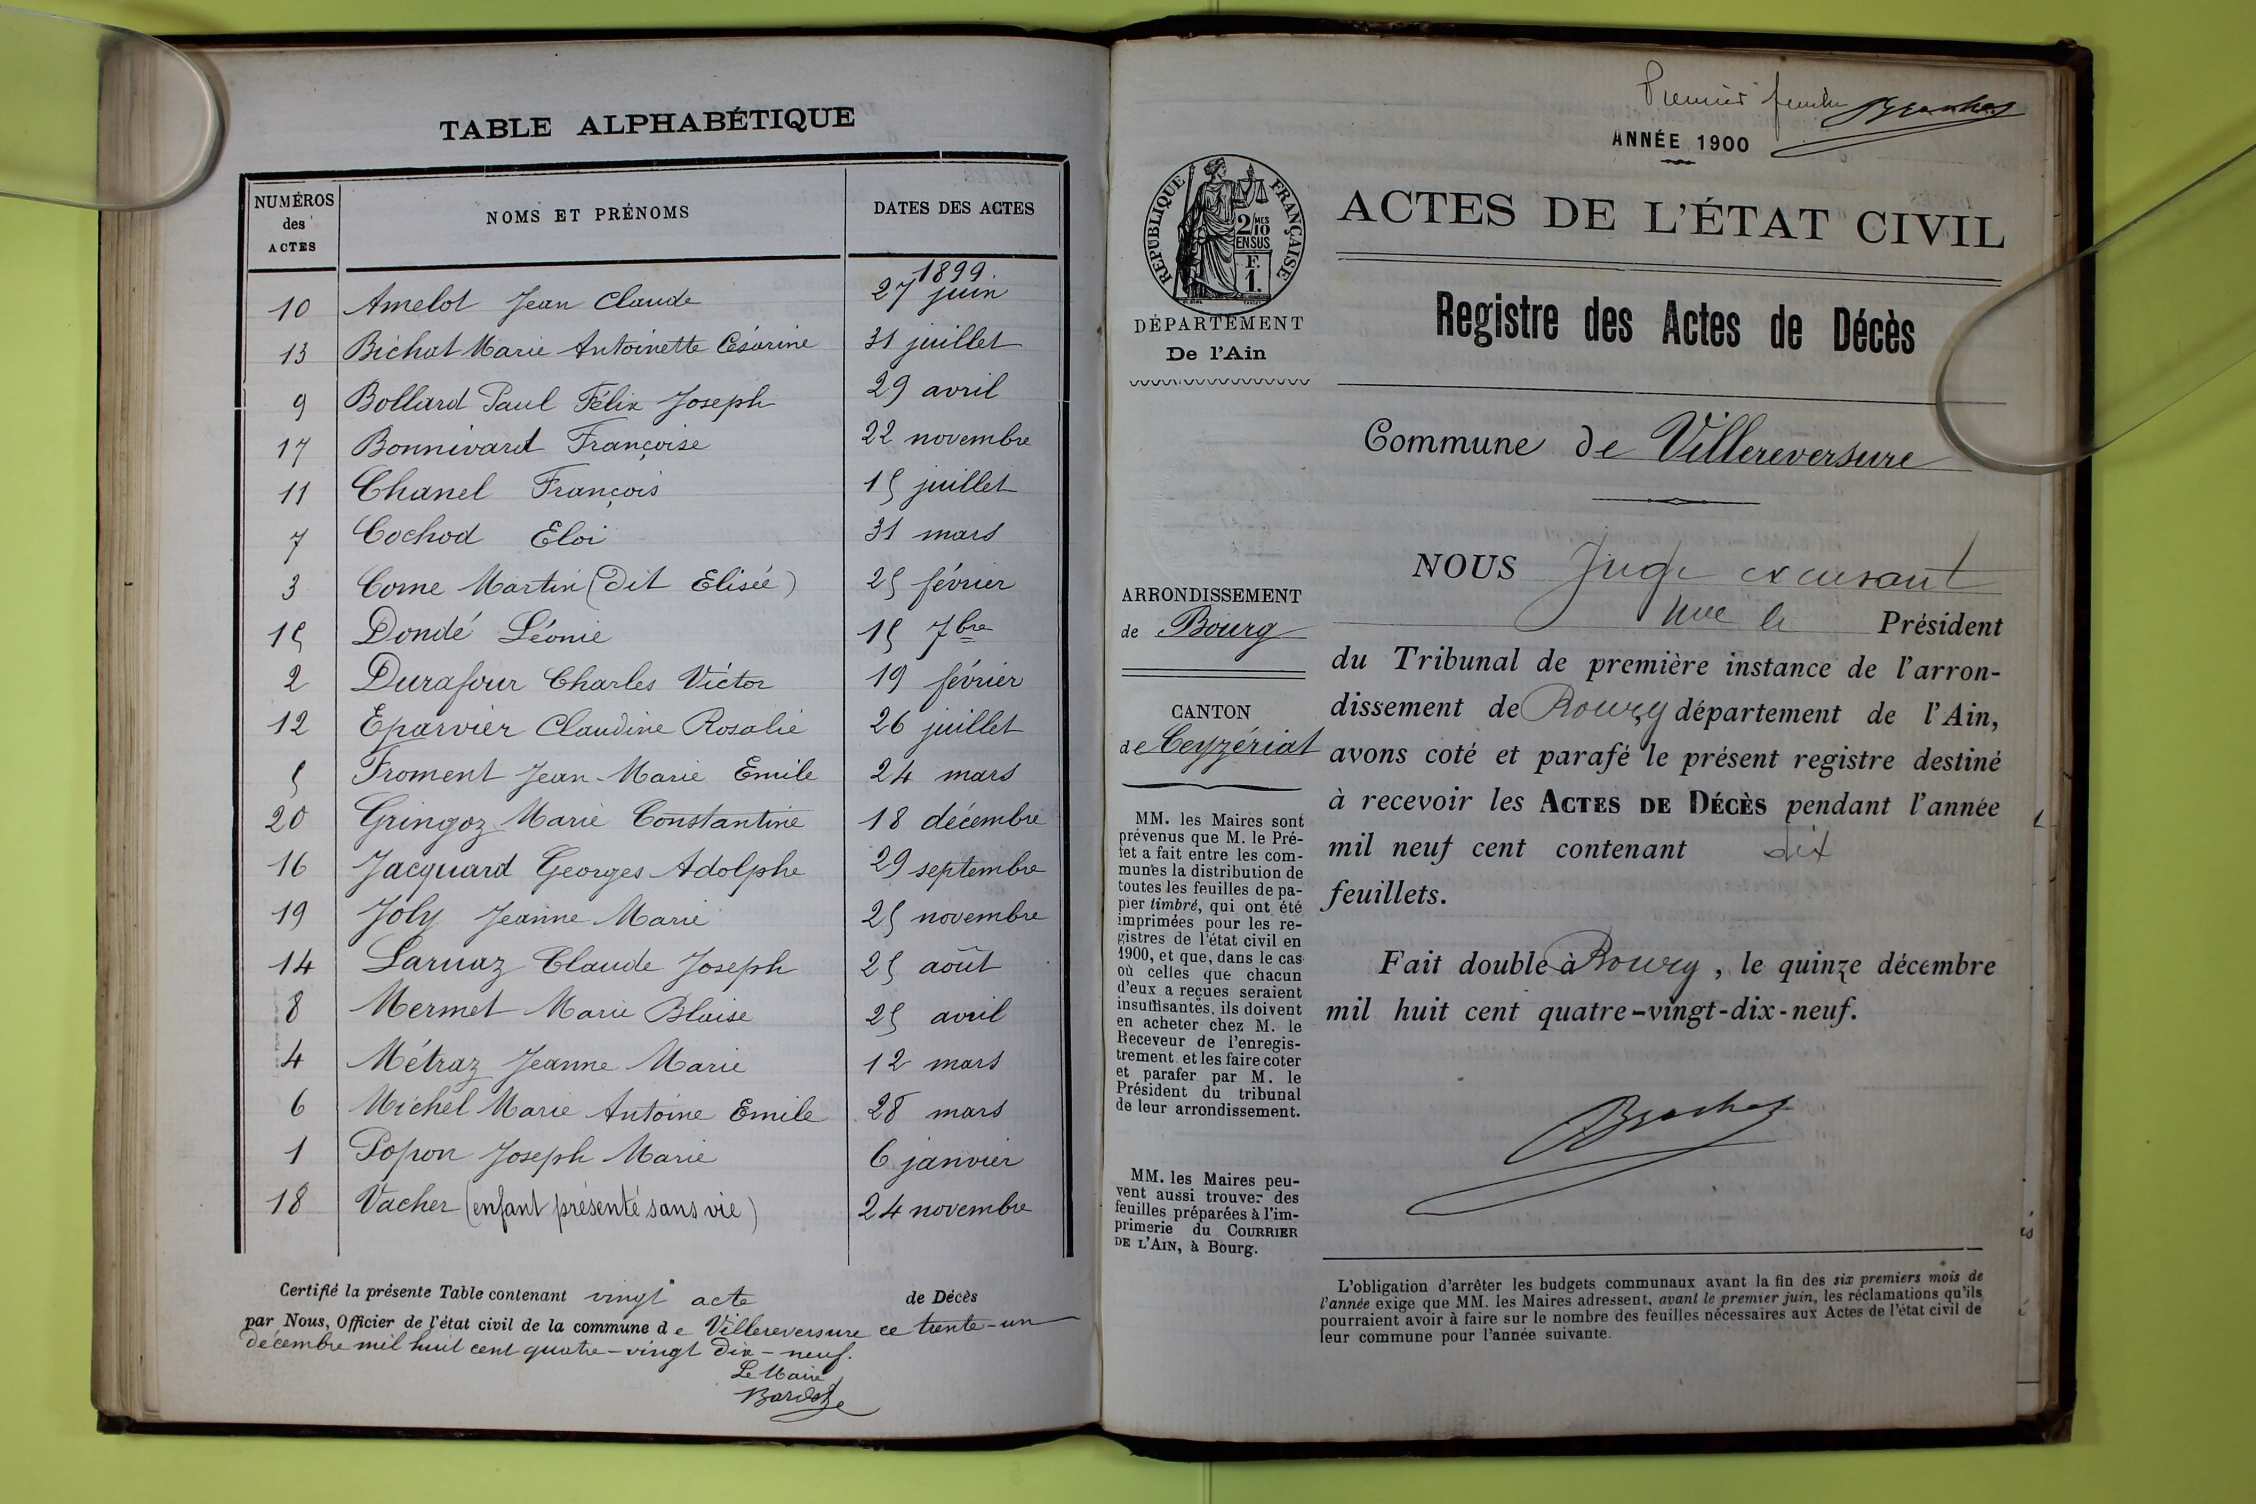 TABLE ALPHABÉTIQUE
NUMÉROS des ACTES
NOMS ET PRÉNOMS
DATES DES ACTES
1899.
10 Amelot Jean Claude 27 juin
13 Bichat Marie Antoinette Césarine 31 juillet
9 Bollard Paul Félix Joseph 29 avril
17 Bonnivard Françoise 22 novembre
11 Chanel François 15 juillet
7 Cochod Eloi 31 mars
3 Come Martin (dit Elisée) 25 février
15 Dondé Léonie 15 7bre
2 Durafour Charles Victor 19 février
12 Eparvier Claudine Rosalie 26 juillet
5 Froment Jean-Marie Emile 24 mars
20 Gringoz Marie Constantine 18 décembre
16 Jacquard Georges Adolphe 29 septembre
19 Joly Jeanne Marie 25 novembre
14 Larvaz Claude Joseph 25 août
8 Mermet Marie Blaise 25 avril
4 Métraz Jeanne Marie 12 mars
6 Michel Marie Antoine Emile 28 mars
1 Popon Joseph Marie 6 janvier
18 Vacher (enfant présenté sans vie) 24 novembre
Certifié la présente Table contenant vingt acte de Décès
par Nous, Officier de l'état civil de la commune de Villereversure ce trente-un
décembre mil huit cent quatre-vingt dix-neuf.
Le Maire
Premier
ANNÉE 1900
RÉPUBLIQUE FRANÇAISE
2/10
MES
EN SUS
F.
1.
DÉPARTEMENT
De l'Ain
ACTES DE L'ÉTAT CIVIL
Registre des Actes de Décès
Commune de Villereversure
ARRONDISSEMENT
de Bourg
CANTON
de Ceyzériat
MM. les Maires sont
prévenus que M. le Pré-
fet a fait entre les com-
munes la distribution de
toutes les feuilles de pa-
pier timbré, qui ont été
imprimées pour les re-
gistres de l'état civil en
1900, et que, dans le cas
où celles que chacun
d'eux a reçues seraient
insuffisantes, ils doivent
en acheter chez M. le
Receveur de l'enregis-
trement et les faire coter
et parafer par M. le
Président du tribunal
de leur arrondissement.
MM. les Maires peu-
vent aussi trouver des
feuilles préparées à l'im-
primerie du COURRIER
DE L'AIN, à Bourg.
NOUS Juge
le Président
du Tribunal de première instance de l'arron-
dissement de Bourg département de l'Ain,
avons coté et parafé le présent registre destiné
à recevoir les ACTES DE DÉCÈS pendant l'année
mil neuf cent contenant dix
feuillets.
Fait double à Bourg, le quinze décembre
mil huit cent quatre-vingt-dix-neuf.
L'obligation d'arrêter les budgets communaux avant la fin des six premiers mois de
l'année exige que MM. les Maires adressent, avant le premier juin, les réclamations qu'ils
pourraient avoir à faire sur le nombre des feuilles nécessaires aux Actes de l'état civil de
leur commune pour l'année suivante.